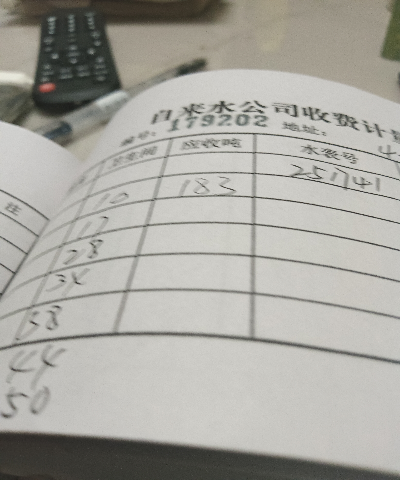 自来水公司收费计
编号: 179202 地址:
注 卫生间 应收吨 水表号
10 183 251741
17
28
34
38
44
50